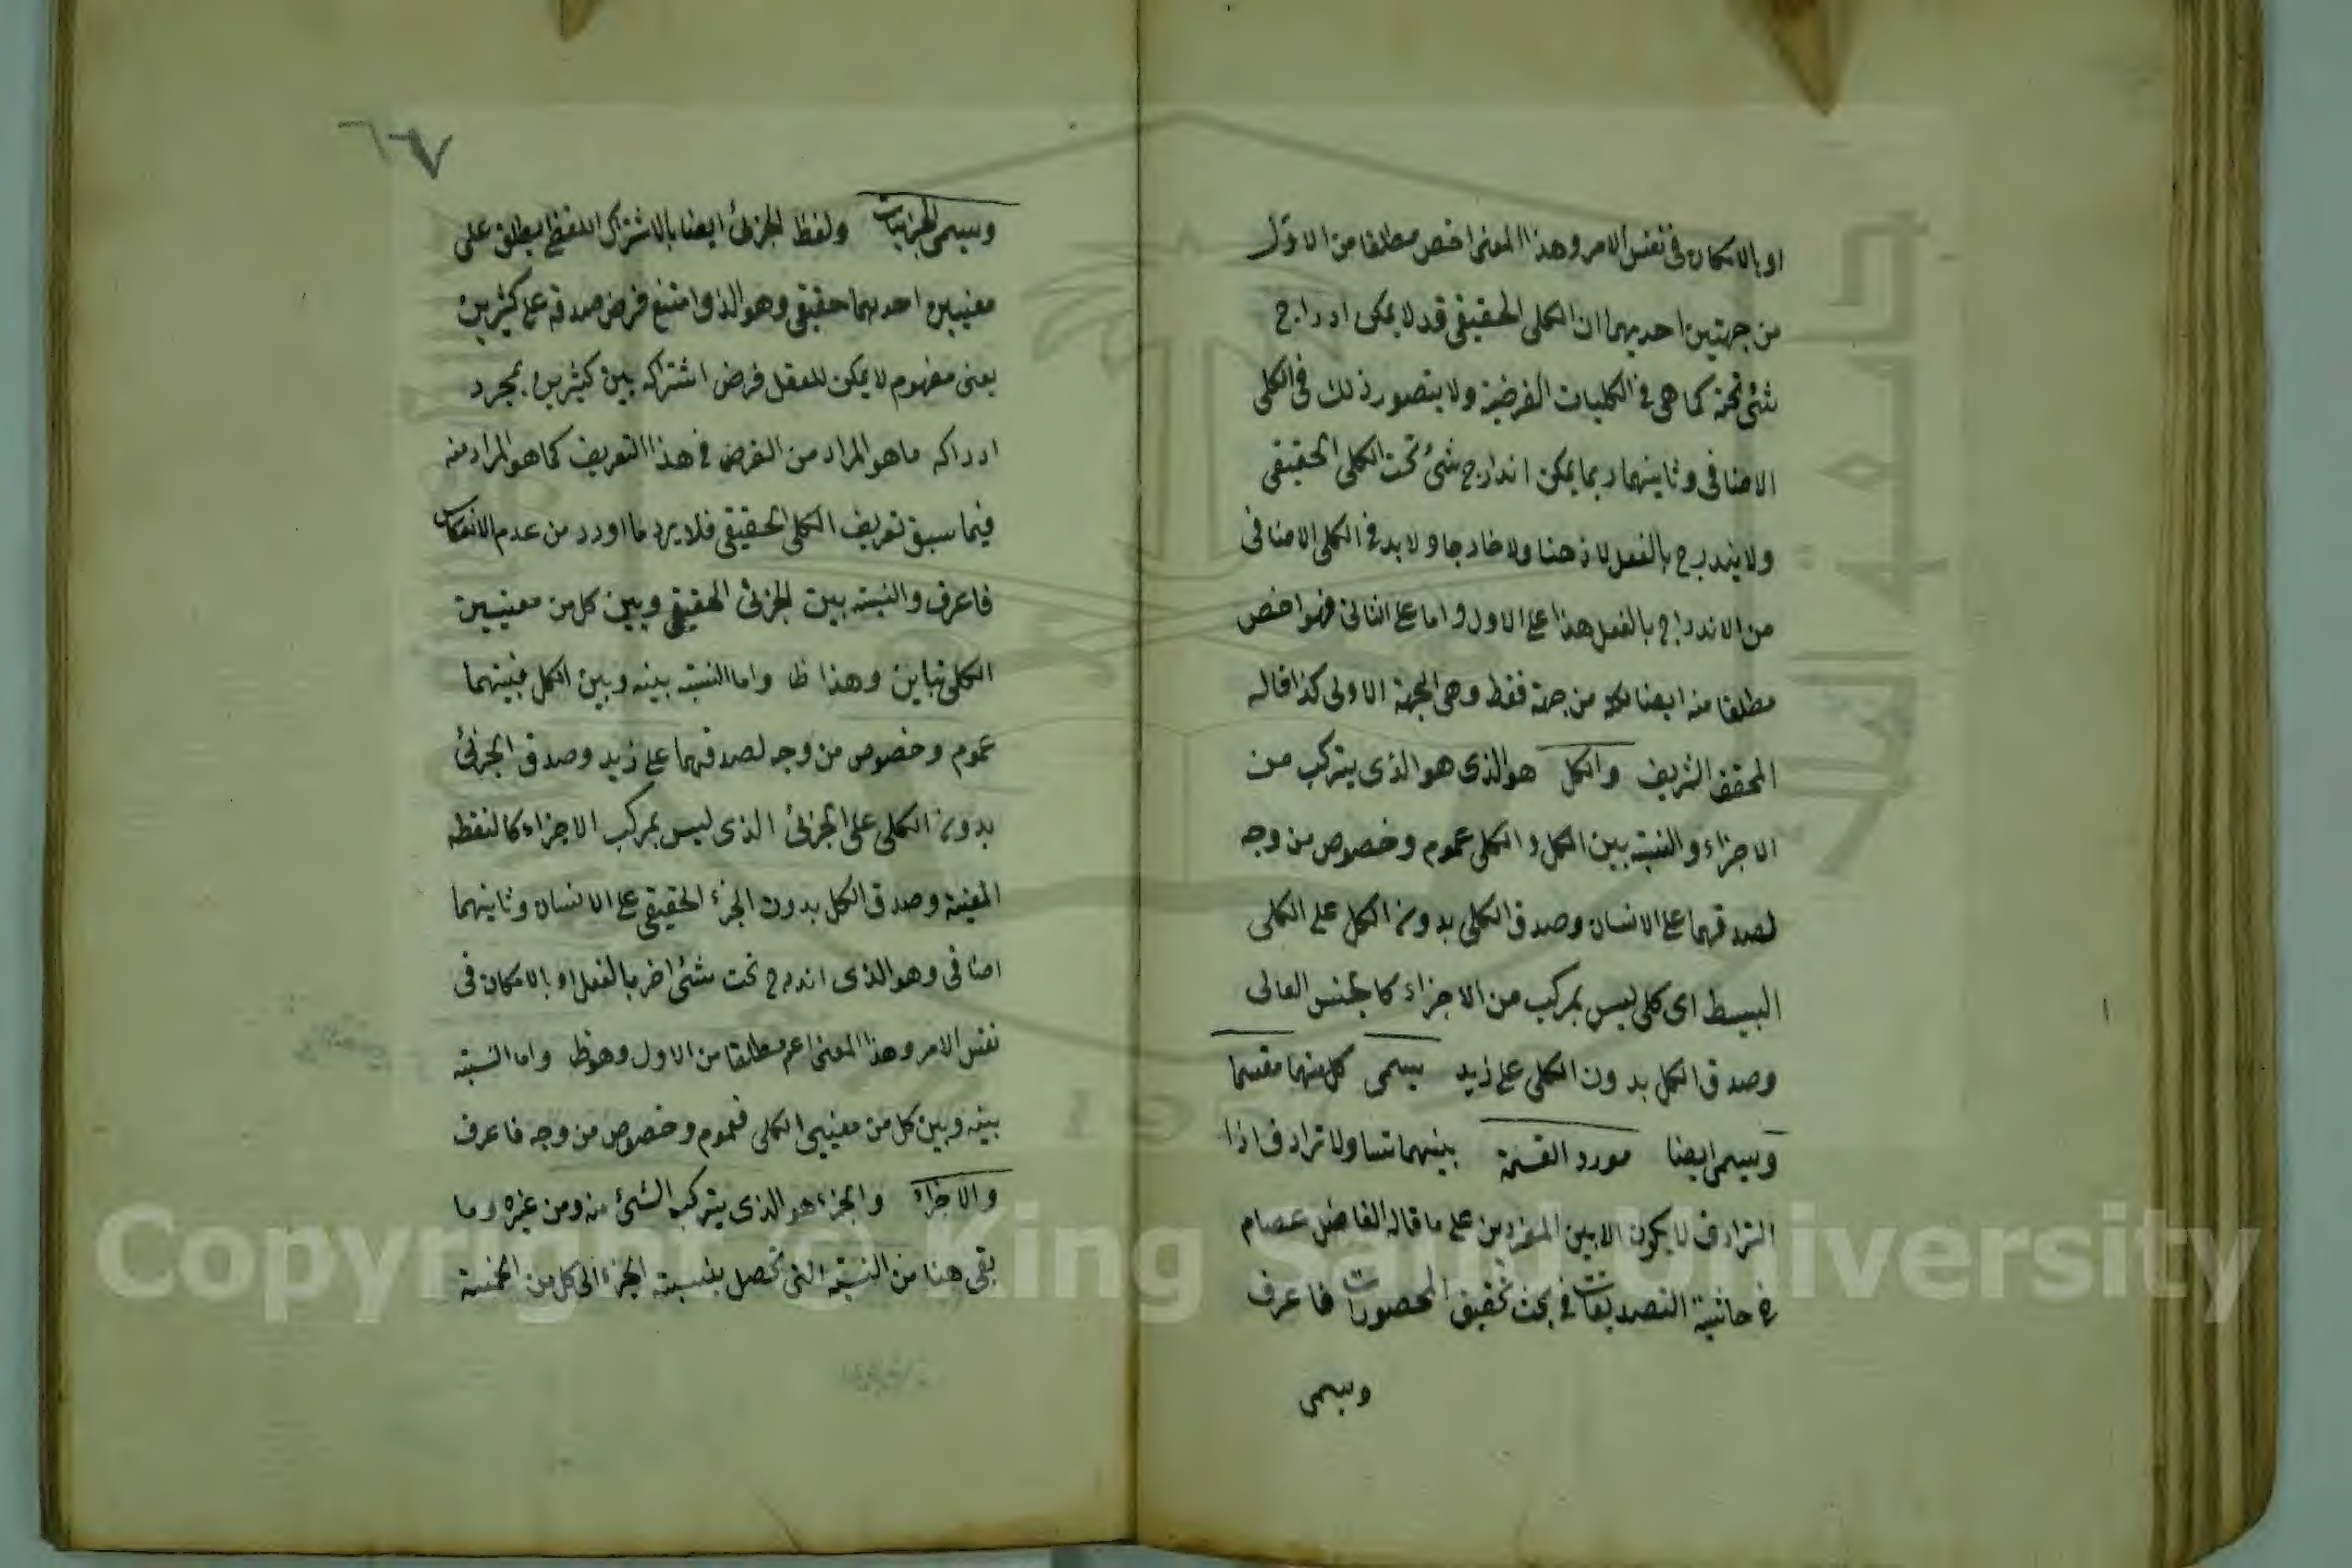 او بالامكان في نفس الامر وهذا المعنى اخص مطلقا من الاول
من جهتين احديهما ان الكلي الحقيقي قد لا يمكن ادراج
شئ تحته كما هى في الكليات الفرضية ولا يتصور ذلك في الكلي
الاضافي وثانيتهما ربما يمكن اندراج شئ تحت الكلي الحقيقي
ولا يندرج بالفعل لا ذهنا ولا خارجا ولا بد في الكلي الاضافي
من الاندراج بالفعل هذا على الاول واما على الثاني فهو اخص
مطلقا منه ايضا من جهة فقط وهى الجهة الاولى كذا قاله
المحقق الشريف والكل هو الذى هو الذى يتركب من
الاجزاء والنسبة بين الكل والكلي عموم وخصوص من وجه
لصدقهما على الانسان وصدق الكلي بدون الكل على الكلي
البسيط اى كلي ليس بمركب من الاجزاء كالجنس العالى
وصدق الكل بدون الكلي على زيد يسمى كل منهما مقسما
ويسمى ايضا مورد القسمة بينهما تساو لا ترادف اذا
الترادف لا يكون الا بين المفردين على ما قاله الفاضل عصام
في حاشية التصديقات في بحث تحقيق المحصورات فاعرف
ويسمى
٦٧
ويسمى الجزئيات ولفظ الجزئ ايضا بالاشتراك اللفظى يطلق على
معنيين احديهما حقيقي وهو الذى امتنع فرض صدقه على كثيرين
يعنى مفهوم لا يمكن للعقل فرض اشتراكه بين كثيرين بمجرد
ادراكه ما هو المراد من الفرض في هذا التعريف كما هو المراد منه
فيما سبق تعريف الكلي الحقيقي فلا يرد ما اورد من عدم الانعكاس
فاعرف والنسبة بين الجزئ الحقيقي وبين كل من معنيين
الكلي تباين وهذا ظ واما النسبة بينه وبين الكل فبينهما
عموم وخصوص من وجه لصدقهما على زيد وصدق الجزئ
بدون الكلي على الجزئ الذى ليس بمركب الاجزاء كالنقطة
المعينة وصدق الكل بدون الجزء الحقيقي على الانسان وثانيهما
اضافي وهو الذى اندرج تحت شئ اخر بالفعل او بالامكان في
نفس الامر وهذا المعنى اعم مطلقا من الاول وهو ظ واما النسبة
بينه وبين كل من معنيي الكلي فعموم وخصوص من وجه فاعرف
والاجزاء والجزء هو الذى يتركب الشئ منه ومن غيره وما
بقى هنا من النسبة التى تحصل بنسبة الجزء الى كل من الخمسة
Copyright © King Saud University